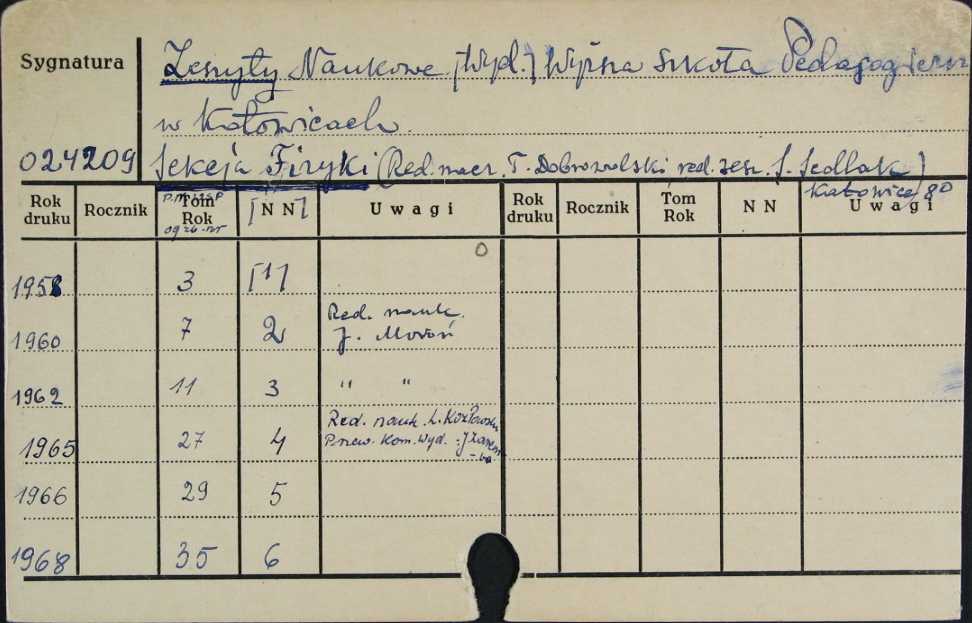 Sygnatura Zeszyty Naukowe [Wyd.] Wyższa Szkoła Pedagogiczn
w Katowicach.
024209 Sekcja Fizyki (Red. nacz. T. Dobrowolski red. zesz. J. Sedlak)
Katowice 8°
Rok druku Rocznik Tom Rok [N N] Uwagi Rok druku Rocznik Tom Rok N N Uwagi
og zb. nr
1958 3 [1]
1960 7 2 Red. nauk. J. Moroń
1962 11 3 " "
1965 27 4 Red. nauk. L. Kozłowski
Przew. Kom. Wyd. : J. Zaremba
1966 29 5
1968 35 6